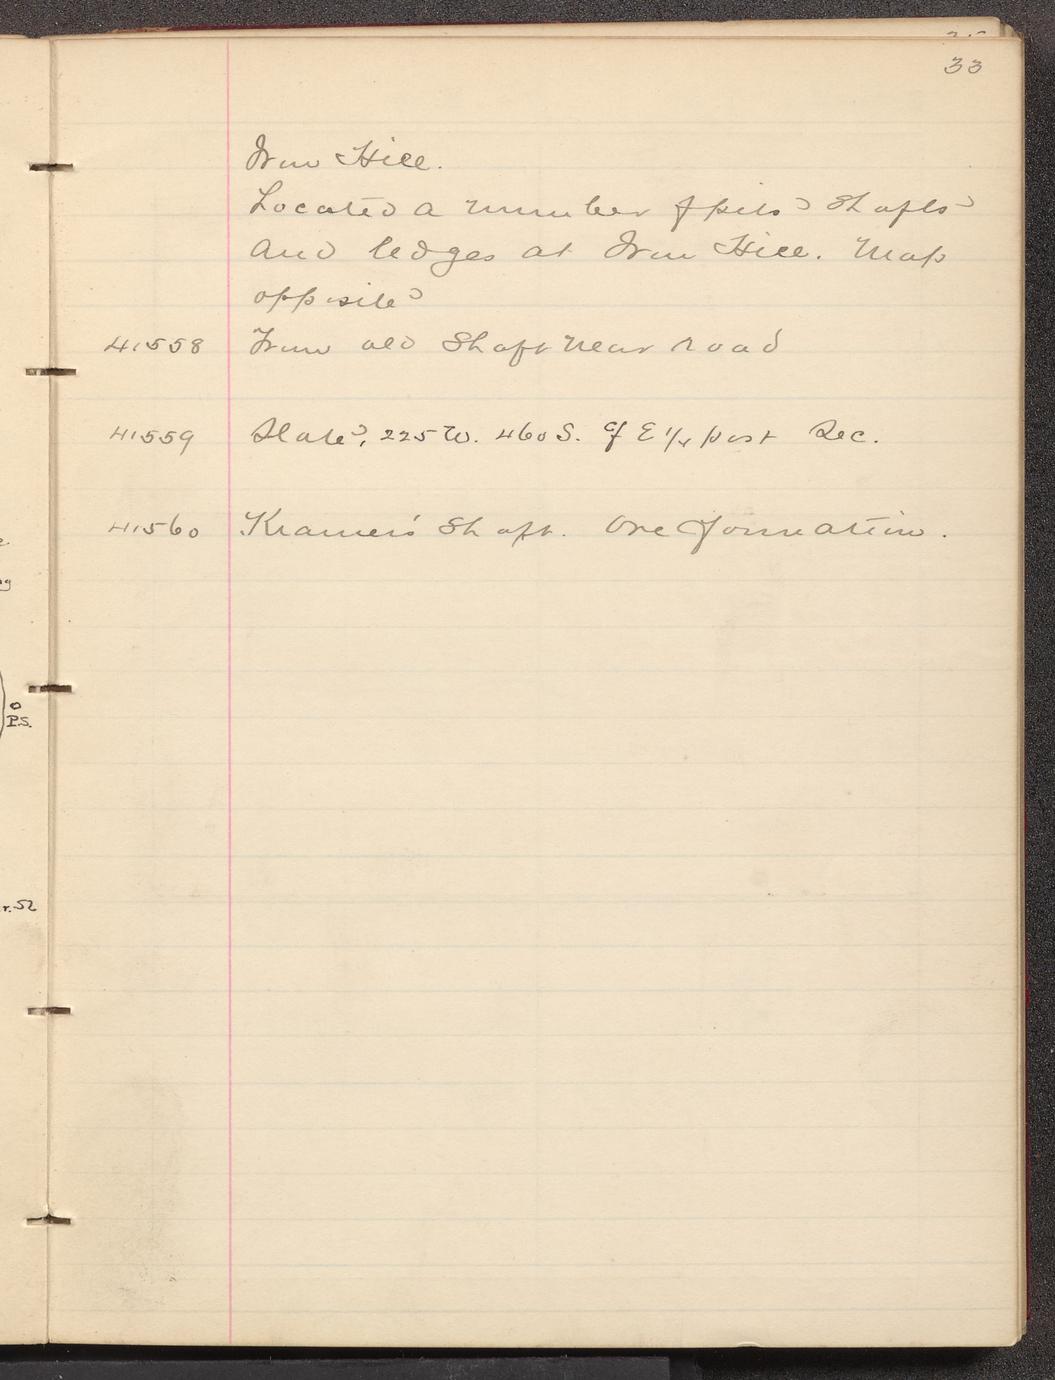 33
Iron Hill.
Located a number of pits, shafts,
and ledges at Iron Hill. Map
opposite,
41558 From old shaft near road
41559 Slate, 225 W. 460 S. of E 1/4 post Sec.
41560 Kramer's shaft. Ore formation.
P.S.